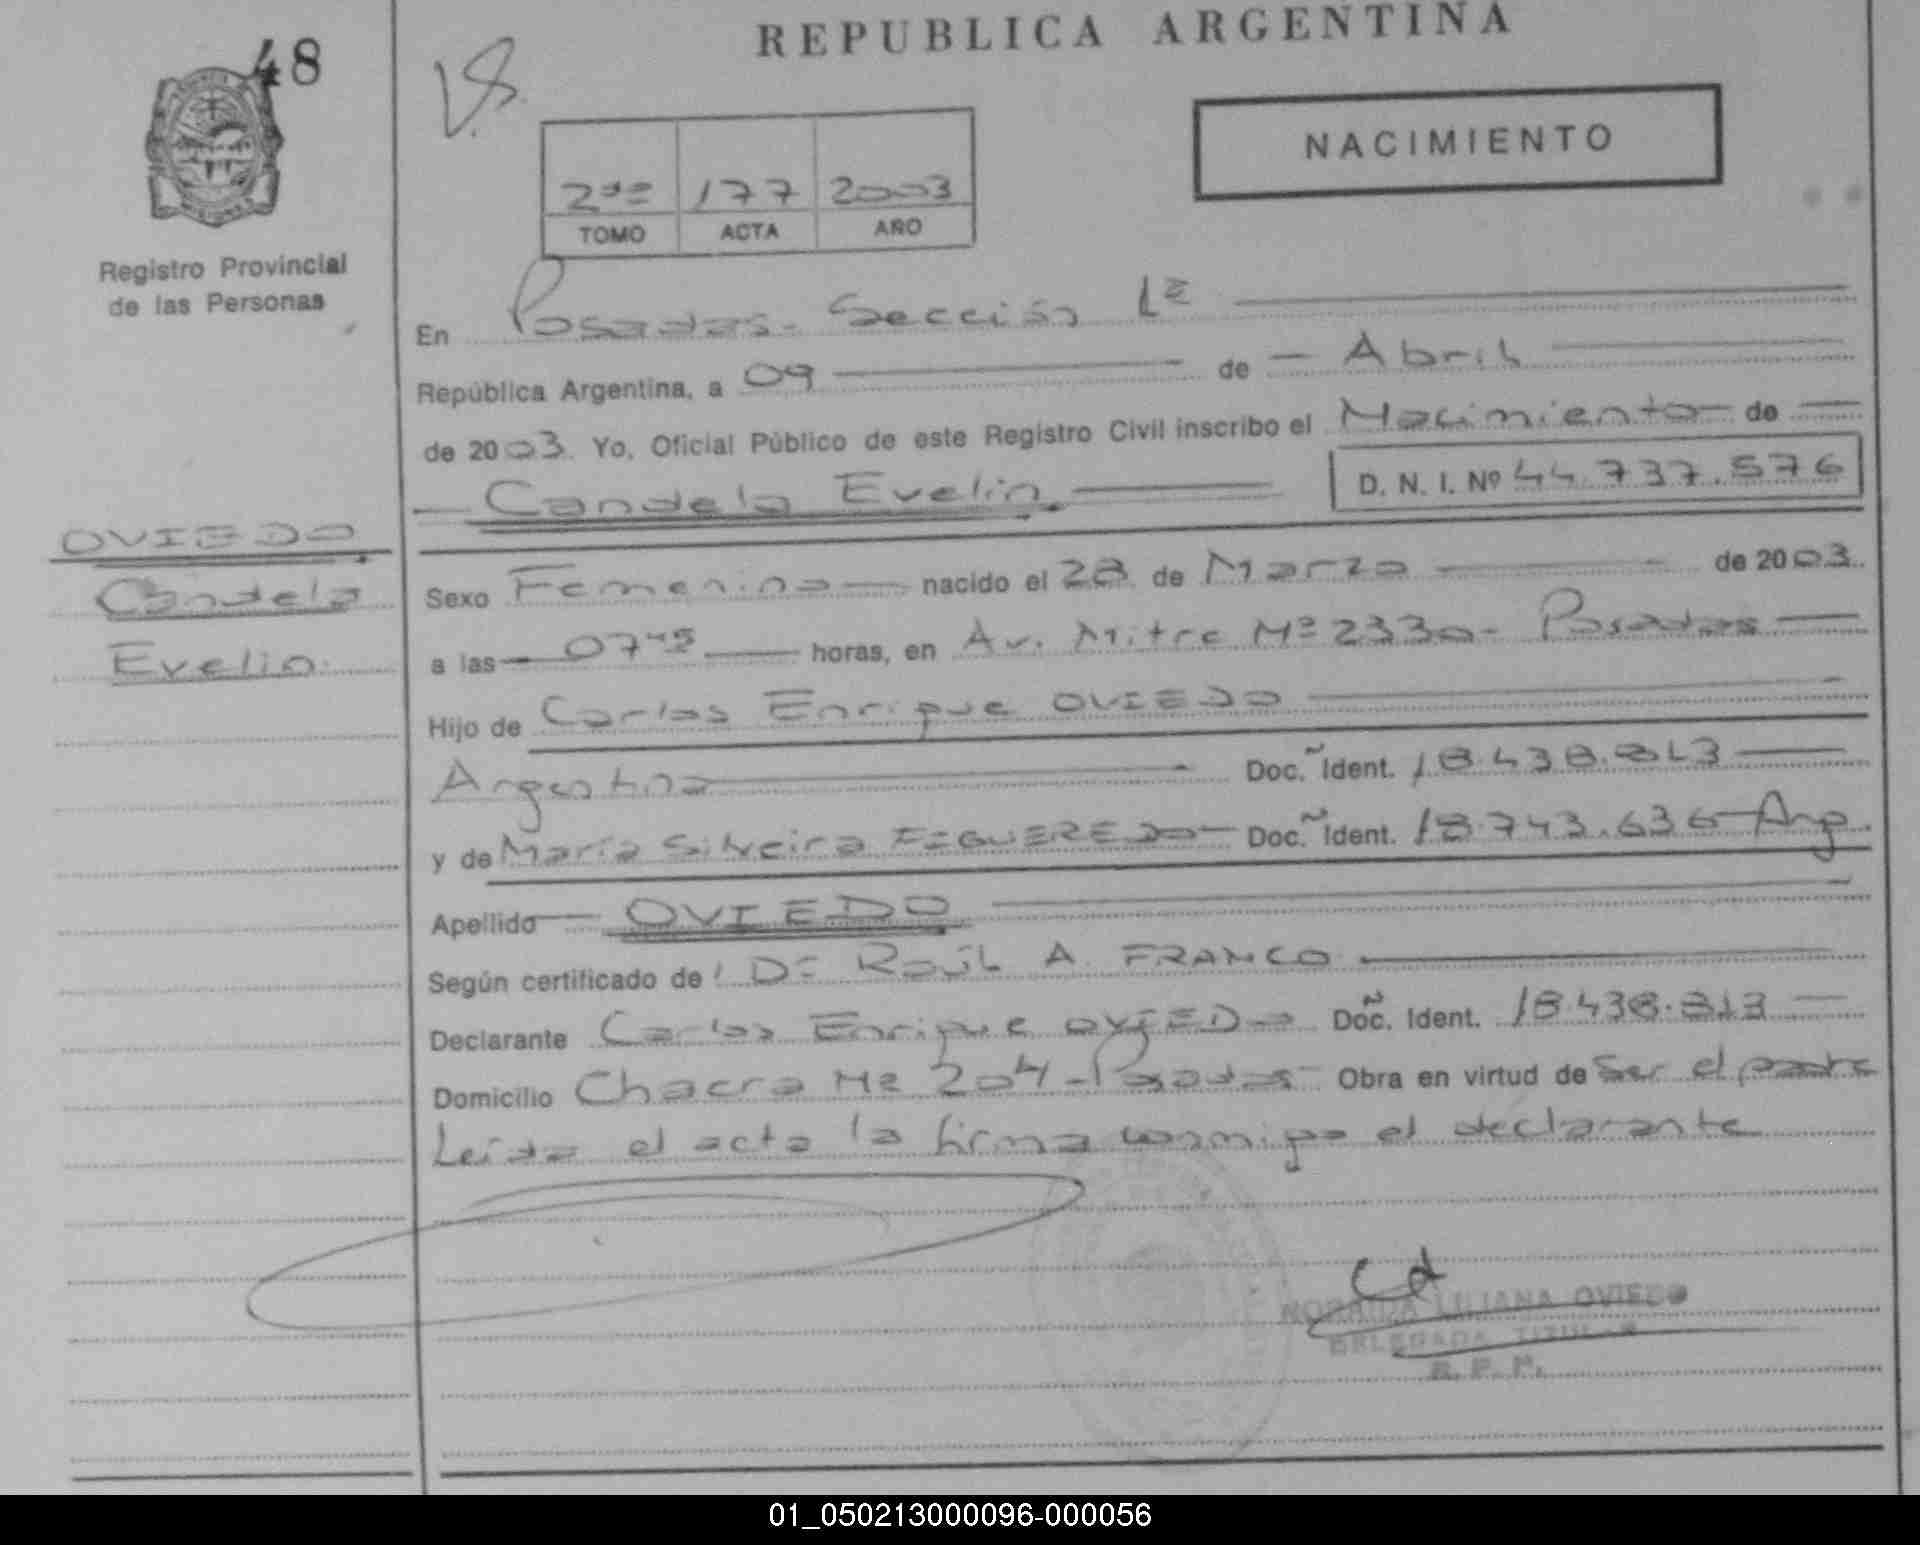 48
REPUBLICA ARGENTINA
NACIMIENTO
2do 177 2003
TOMO ACTA AÑO
Registro Provincial
de las Personas
En Posadas - Sección 1ª
República Argentina, a 09 de Abril
de 2003. Yo, Oficial Público de este Registro Civil inscribo el Nacimiento de
Candela Evelin D. N. I. Nº 44.737.576
OVIEDO
Candela
Evelin
Sexo Femenino nacido el 28 de Marzo de 2003.
a las 07 45 horas, en Av. Mitre Nº 2330 - Posadas
Hijo de Carlos Enrique OVIEDO
Argentina Doc. Ident. 18.438.813
y de María Silveira FIGUEREDO Doc. Ident. 18.743.636 Arg.
Apellido OVIEDO
Según certificado de Dr Raúl A. FRANCO
Declarante Carlos Enrique OVIEDO Doc. Ident. 18.438.813
Domicilio Chacra Nº 204 - Posadas Obra en virtud de Ser el padre
Leída el acta la firma conmigo el declarante
LILIANA OVIEDO
DELEGADA TITULAR
R. P. P.
01_050213000096-000056